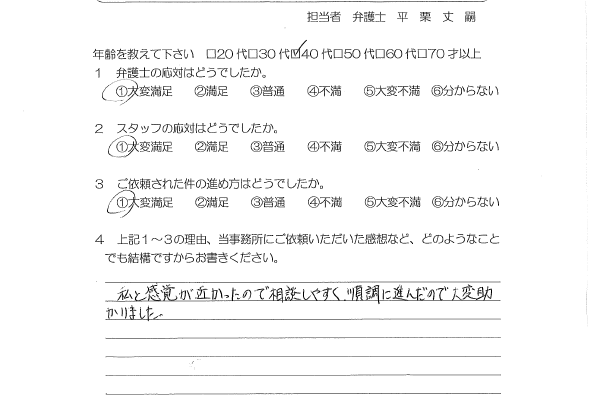 担当者　弁護士　平　栗　丈　嗣
年齢を教えて下さい　□20代□30代☑40代□50代□60代□70才以上
１　弁護士の応対はどうでしたか。
①大変満足　②満足　③普通　④不満　⑤大変不満　⑥分からない
２　スタッフの応対はどうでしたか。
①大変満足　②満足　③普通　④不満　⑤大変不満　⑥分からない
３　ご依頼された件の進め方はどうでしたか。
①大変満足　②満足　③普通　④不満　⑤大変不満　⑥分からない
４　上記１～３の理由、当事務所にご依頼いただいた感想など、どのようなこと
でも結構ですからお書きください。
私と感覚が近かったので相談しやすく、順調に進んだので大変助
かりました。